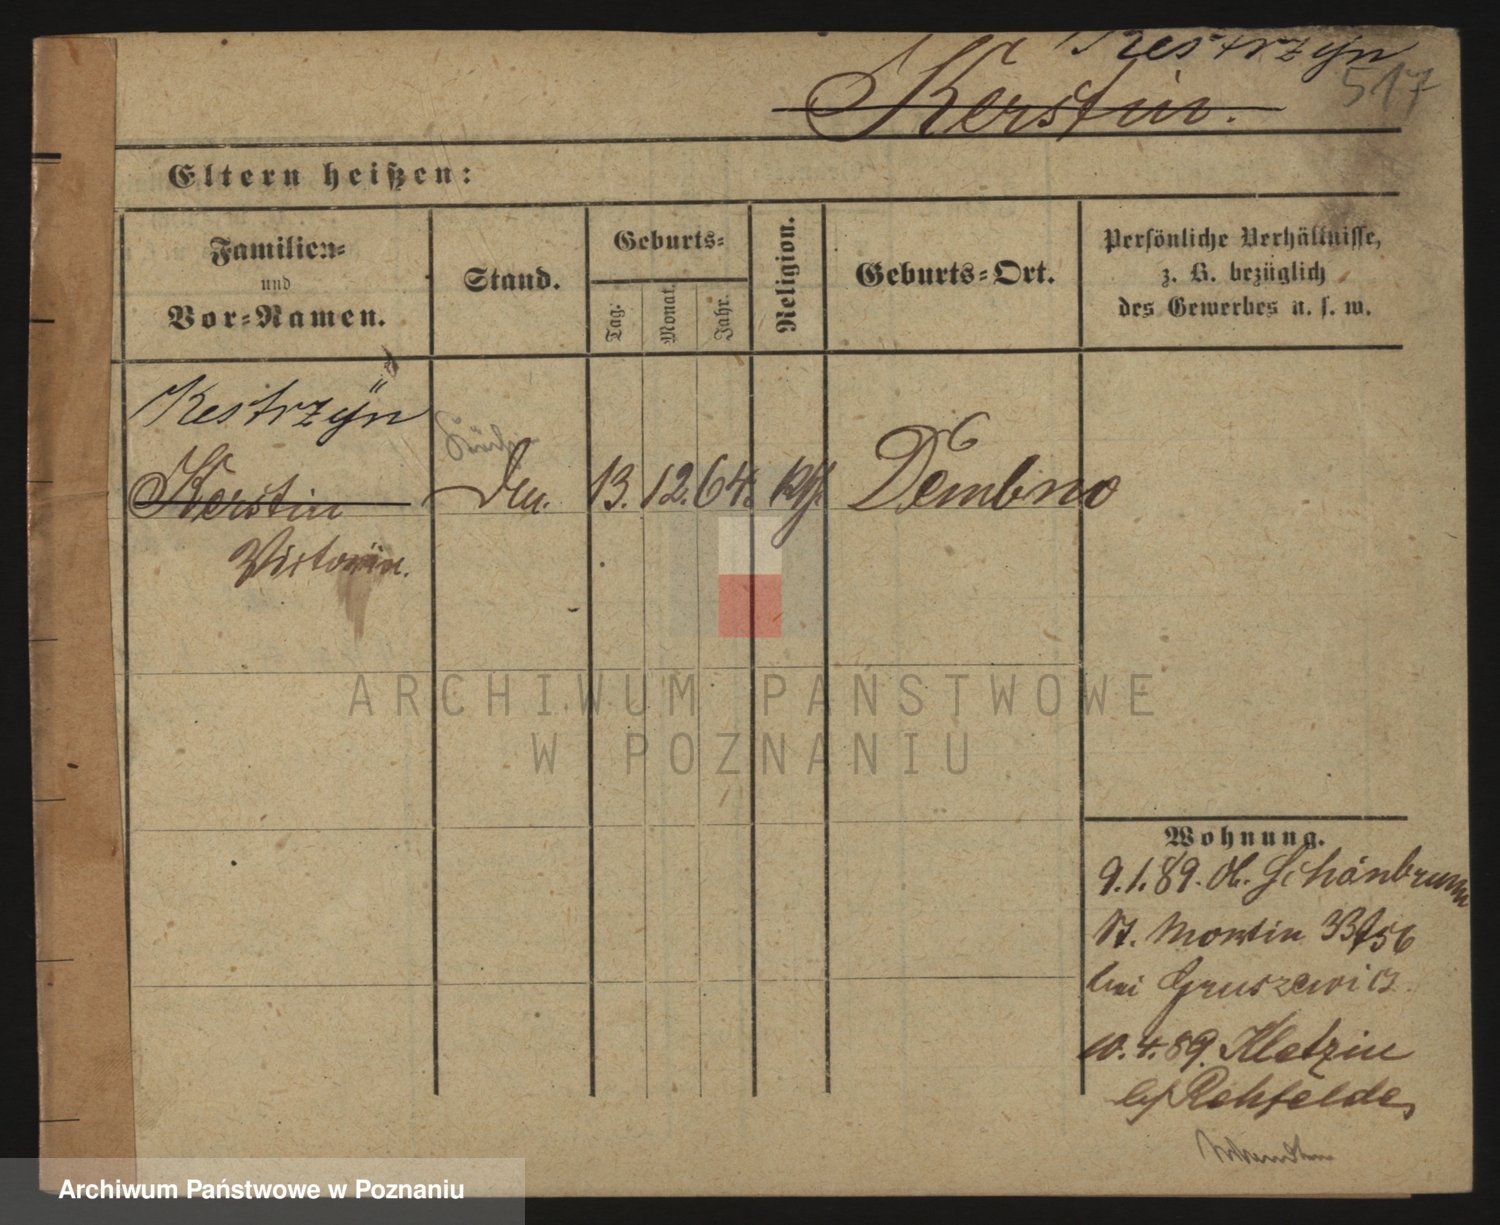 Kestrzyn
Kerstin.
517
Eltern heißen:
Familien-
und
Vor-Namen.
Stand.
Geburts-
Tag:
Monat.
Jahr.
Religion.
Geburts-Ort.
Persönliche Verhältnisse,
z. B. bezüglich
des Gewerbes u. s. w.
Kestrzÿn
Kerstin
Victorin.
13. 12. 64.
Dembno
ARCHIWUM PAŃSTWOWE
W POZNANIU
Wohnung.
9.1.89. Schönbrunn
St. Martin 33/56
bei Gruszewicz.
10.4.89. Kletzin
b/ Rehfelde
Archiwum Państwowe w Poznaniu